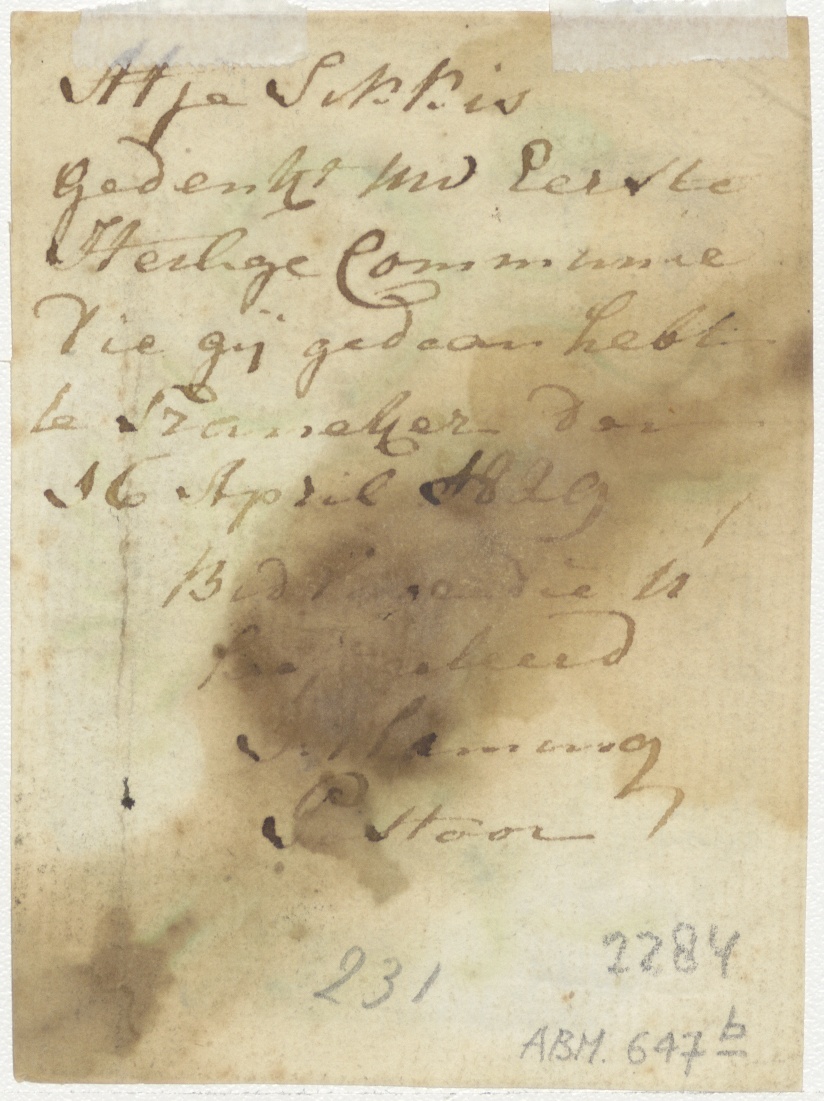 Atje Sikkis
gedenkt uw Eerste
Heilige Communie
die gij gedaan hebt
te Franeker den
16 April 1829
Bid die U
S.
Pastoor
231
2284
ABM. 647 b